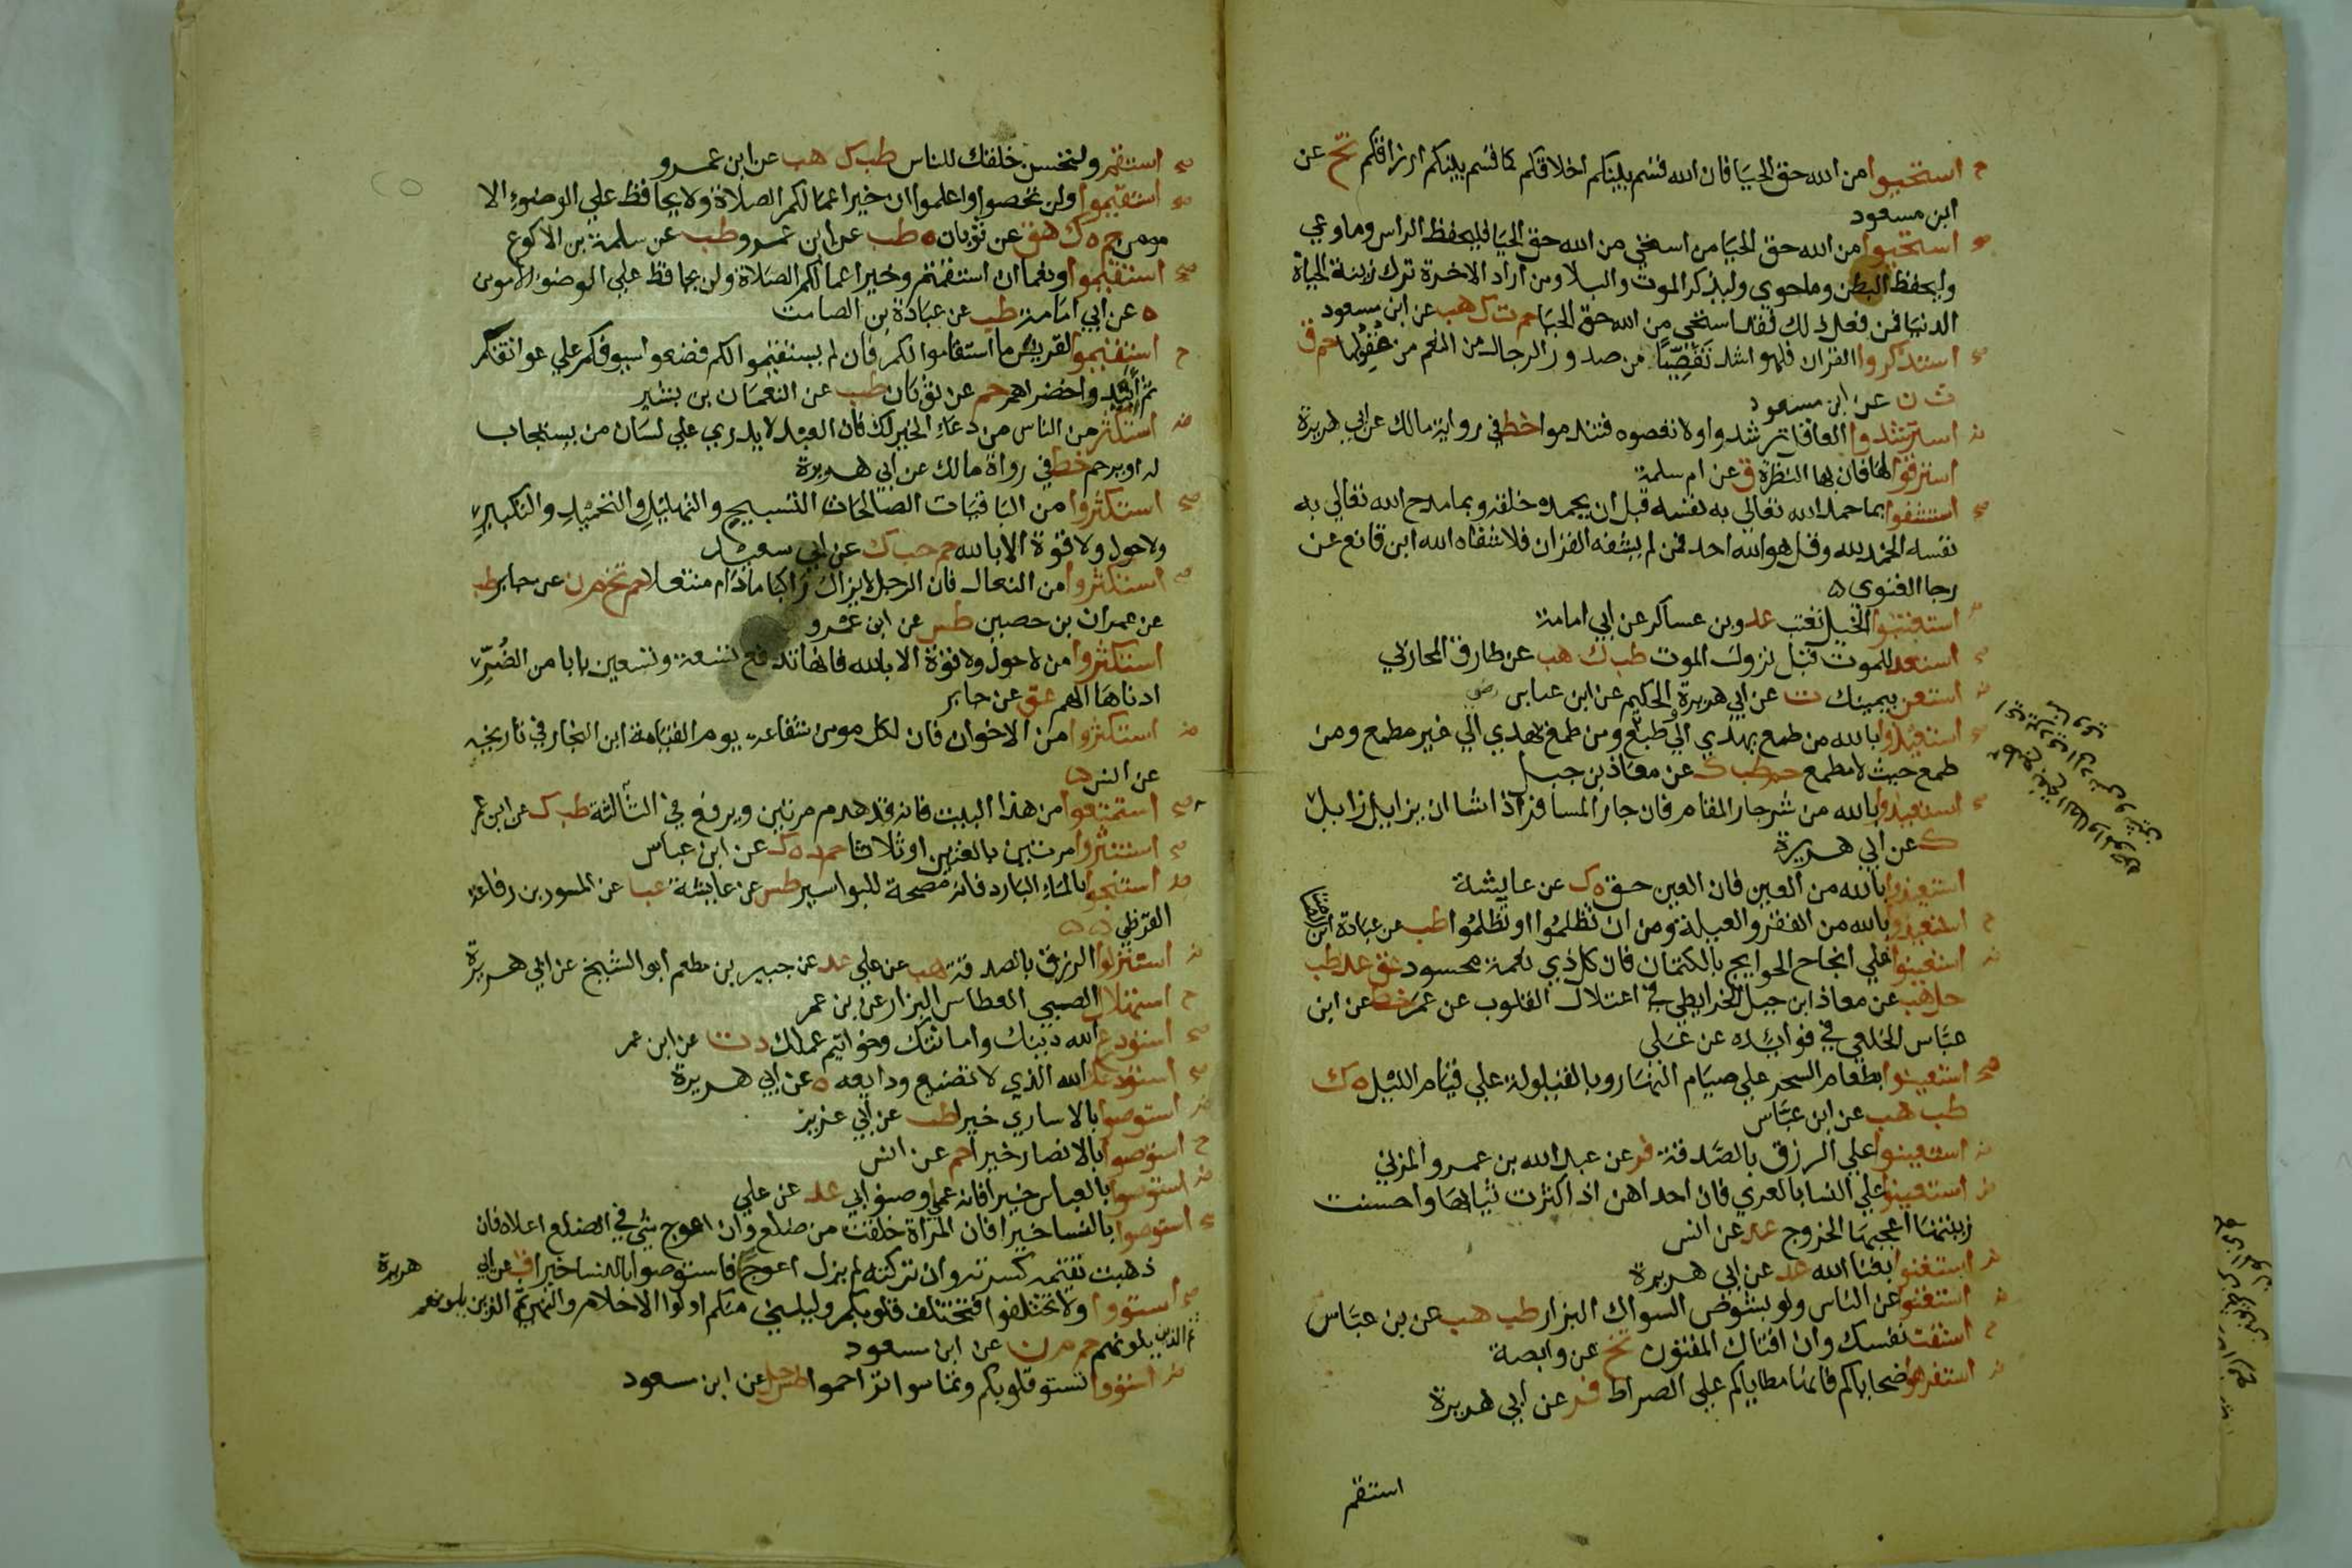 استحيوا من الله حق الحيا فان الله قسم بينكم اخلاقكم كما قسم بينكم ارزاقكم تخ عن
ابن مسعود
استحيوا من الله حق الحيا من استحي من الله حق الحيا فليحفظ الراس وما وعي
وليحفظ البطن وما حوي وليذكر الموت والبلا ومن اراد الاخرة ترك زينة الحياة
الدنيا فمن فعل ذلك فقد استحي من الله حق الحيا حم ت ك هب عن ابن مسعود
استذكروا القران فلهو اشد تفصيا من صدور الرجال من النعم من عقولها حم ق
ت ن عن ابن مسعود
استرشدوا العاقل ترشدوا ولا تعصوه فتندموا خط في رواية مالك عن ابي هريرة
استرقوا لها فان بها النظرة ق عن ام سلمة
استشفوا بما حمد الله تعالي به نفسه قبل ان يحمده خلقه وبما مدح الله تعالي به
نفسه الحمد لله وقل هو الله احد فمن لم يشفه القران فلا شفاه الله ابن قانع عن
رجا الغنوي ه
استعتبوا الخيل تعتب عد وبن عساكر عن ابي امامة
استعد للموت قبل نزول الموت طب ك هب عن طارق المحاربي
استعن بيمينك ت عن ابي هريرة الحكيم عن ابن عباس
استعيذوا بالله من طمع يهدي الي طبع ومن طمع يهدي الي غير مطمع ومن
طمع حيث لا مطمع حم طب ك عن معاذ بن جبل
استعيذوا بالله من شر جار المقام فان جار المسافر اذا شا ان يزايل زايل
ك عن ابي هريرة
استعيذوا بالله من العين فان العين حق ه ك عن عايشة
استعيذوا بالله من الفقر والعيلة ومن ان تظلموا او تظلموا طب عن عبادة ابن
استعينوا علي انجاح الحوايج بالكتمان فان كل ذي نعمة محسود عق عد طب
حل هب عن معاذ ابن جبل الخرايطي في اعتلال القلوب عن عمر خط عن ابن
عباس الخلعي في فوائده عن علي
استعينوا بطعام السحر علي صيام النهار وبالقيلولة علي قيام الليل ه ك
طب هب عن ابن عباس
استعينوا علي الرزق بالصدقة فر عن عبد الله بن عمرو المزني
استعينوا علي النسا بالعري فان احداهن اذا كثرت ثيابها واحسنت
زينتها اعجبها الخروج عد عن انس
استغنوا بغنا الله عد عن ابي هريرة
استغنوا عن الناس ولو بشوص السواك البزار طب هب عن بن عباس
استفت نفسك وان افتاك المفتون تخ عن وابصة
استفرهوا ضحاياكم فانها مطاياكم علي الصراط فر عن ابي هريرة
استقم
استقم ولتحسن خلقك للناس طب ك هب عن ابن عمرو
استقيموا ولن تحصوا واعلموا ان خير اعمالكم الصلاة ولا يحافظ علي الوضوء الا
مومن حم ه ك هق عن ثوبان ه طب عن ابن عمرو طب عن سلمة بن الاكوع
استقيموا ونعما ان استقمتم وخير اعمالكم الصلاة ولن يحافظ علي الوضوء الا مومن
ه عن ابي امامة طب عن عبادة بن الصامت
استقيموا لقريش ما استقاموا لكم فان لم يستقيموا لكم فضعوا سيوفكم علي عواتقكم
ثم ابيدوا خضراهم حم عن ثوبان طب عن النعمان بن بشير
استكثر من الناس من دعاء الخير لك فان العبد لا يدري علي لسان من يستجاب
له او يرحم خط في رواة مالك عن ابي هريرة
استكثروا من الباقيات الصالحات التسبيح والتهليل والتحميد والتكبير
ولا حول ولا قوة الا بالله حم حب ك عن ابي سعيد
استكثروا من النعال فان الرجل لا يزال راكبا ما دام منتعلا حم تخ م ن عن جابر طب
عن عمران بن حصين طس عن ابن عمرو
استكثروا من لا حول ولا قوة الا بالله فانها تدفع تسعة وتسعين بابا من الضر
ادناها الهم عق عن جابر
استكثروا من الاخوان فان لكل مومن شفاعة يوم القيامة ابن النجار في تاريخه
عن انس
استمتعوا من هذا البيت فانه قد هدم مرتين ويرفع في الثالثة طب ك عن ابن عمر
استنثروا مرتين بالغتين او ثلاثا حم د ه ك عن ابن عباس
استنجوا بالماء البارد فانه مصحة للبواسير طس عن عايشة عب عن المسور بن رفاعة
القرظي
استنزلوا الرزق بالصدقة هب عن علي عد عن جبير بن مطعم ابو الشيخ عن ابي هريرة
استهلال الصبي العطاس البزار عن بن عمر
استودع الله دينك وامانتك وخواتيم عملك د ت عن ابن عمر
استودعك الله الذي لا تضيع ودايعه ه عن ابي هريرة
استوصوا بالاساري خيرا طب عن ابي عزيز
استوصوا بالانصار خيرا حم عن انس
استوصوا بالعباس خيرا فانه عمي وصنو ابي عد عن علي
استوصوا بالنسا خيرا فان المراة خلقت من ضلع وان اعوج شي في الضلع اعلاه فان
ذهبت تقيمه كسرته وان تركته لم يزل اعوج فاستوصوا بالنسا خيرا ق عن ابي هريرة
استووا ولا تختلفوا فتختلف قلوبكم وليليني منكم اولوا الاحلام والنهي ثم الذين يلونهم
ثم الذين يلونهم حم م ن عن ابن مسعود
استووا تستو قلوبكم وتماسوا تراحموا طس حل عن ابن مسعود